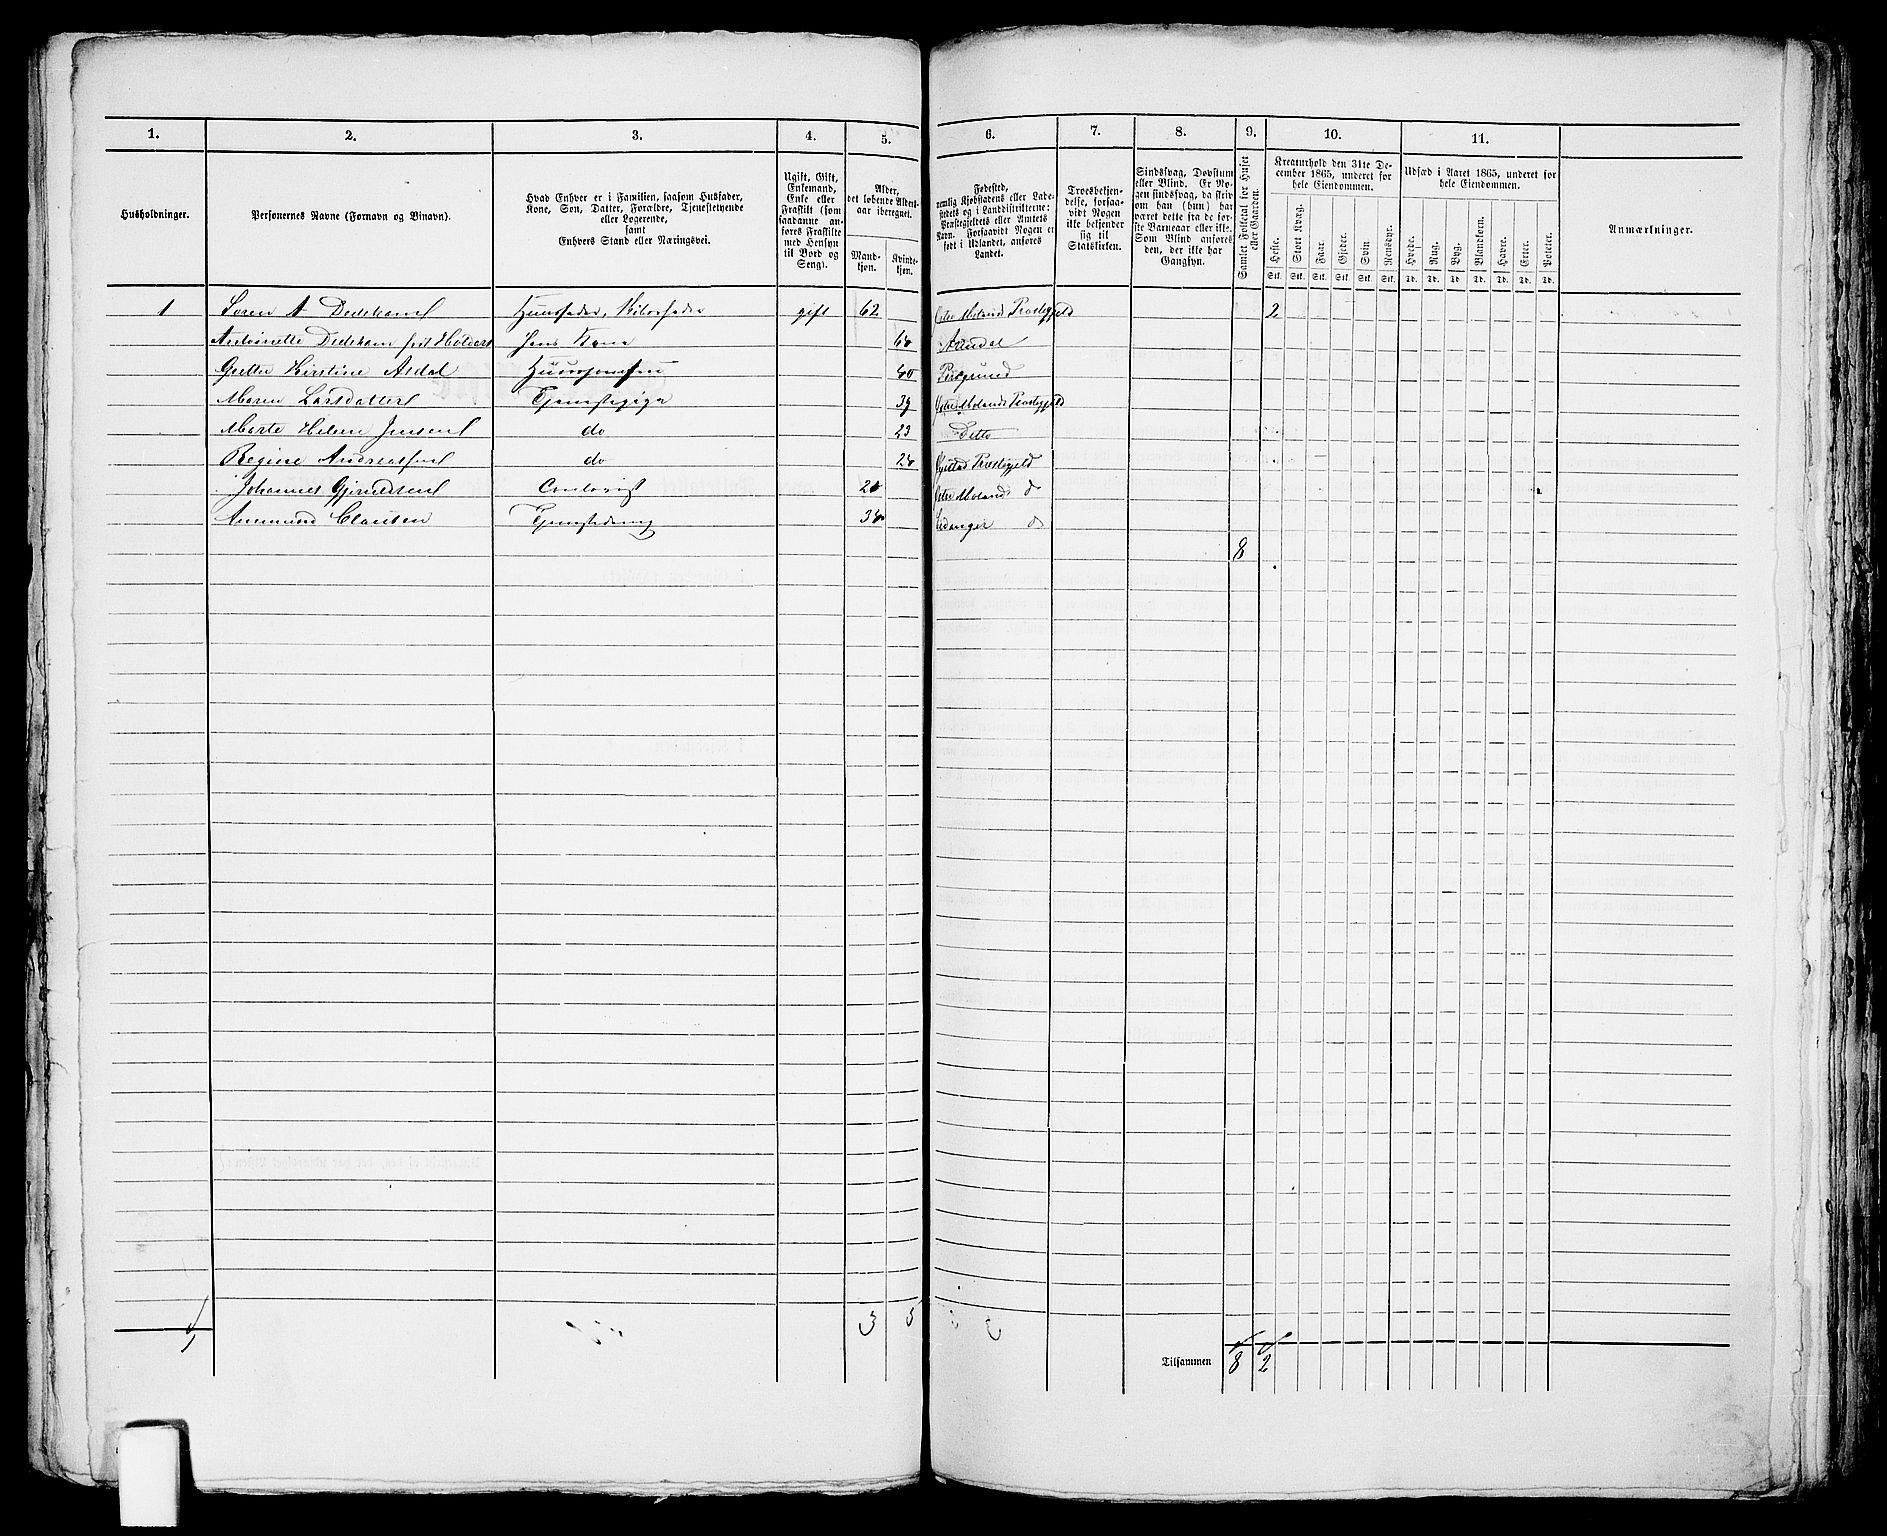 1. 2. 3. 4. 5. 6. 7. 8. 9. 10. 11.
Husholdninger.
Personernes Navne (Fornavn og Binavn).
Hvad Enhver er i Familien, saasom Husfader,
Kone, Søn, Datter, Forældre, Tjenestetyende
eller Logerende,
samt
Enhvers Stand eller Næringsvei.
Ugift, Gift,
Enkemand,
Enke eller
Fraskilt (som
saadanne an-
føres Fraskilte
med Hensyn
til Bord og
Seng).
Alder,
det løbende Alders-
aar iberegnet.
Mand-
kjøn.
Kvinde-
kjøn.
Fødested,
nemlig Kjøbstadens eller Lade-
stedets og i Landdistrikterne:
Præstegjeldets eller Amtets
Navn. Forsaavidt Nogen er
født i Udlandet, anføres
Landet.
Troesbekjen-
delse, forsaa-
vidt Nogen
ikke bekjender
sig til
Statskirken.
Sindssvag, Døvstum
eller Blind. Er No-
gen sindssvag, da skriv
om han (hun) har
været dette fra de før-
ste Barneaar eller ikke.
Som Blind anføres
den, der ikke har
Gangsyn.
Samlet Folketal for Huset
eller Gaarden.
Kreaturhold den 31te De-
cember 1865, underet for
hele Eiendommen.
Heste. Stort Kvæg. Faar. Gjeder. Svin. Rensdyr.
Stk. Stk. Stk. Stk. Stk. Stk.
Udsæd i Aaret 1865, underet for
hele Eiendommen.
Hvede. Rug. Byg. Blandkorn. Havre. Erter. Poteter.
Td. Td. Td. Td. Td. Td. Td.
Anmærkninger.
1 Søren A Dedekam Huusfader, gift 62 Østre Molands Præstegjeld 2
Antoinette Dedekam født Hans Kone Arendal
Grethe Kirstine Aldal Porsgrund
Maren Larsdatter Tjenestepige 39 Østre Molands Præstegjeld
Marte Helene Jensen do 23 Detto
Regine Andreassen do Øjestad Præstegjeld
Johannes Contorist Østre Molands do
Clausen Tjenestedreng do
8
3 5
Tilsammen 8 2